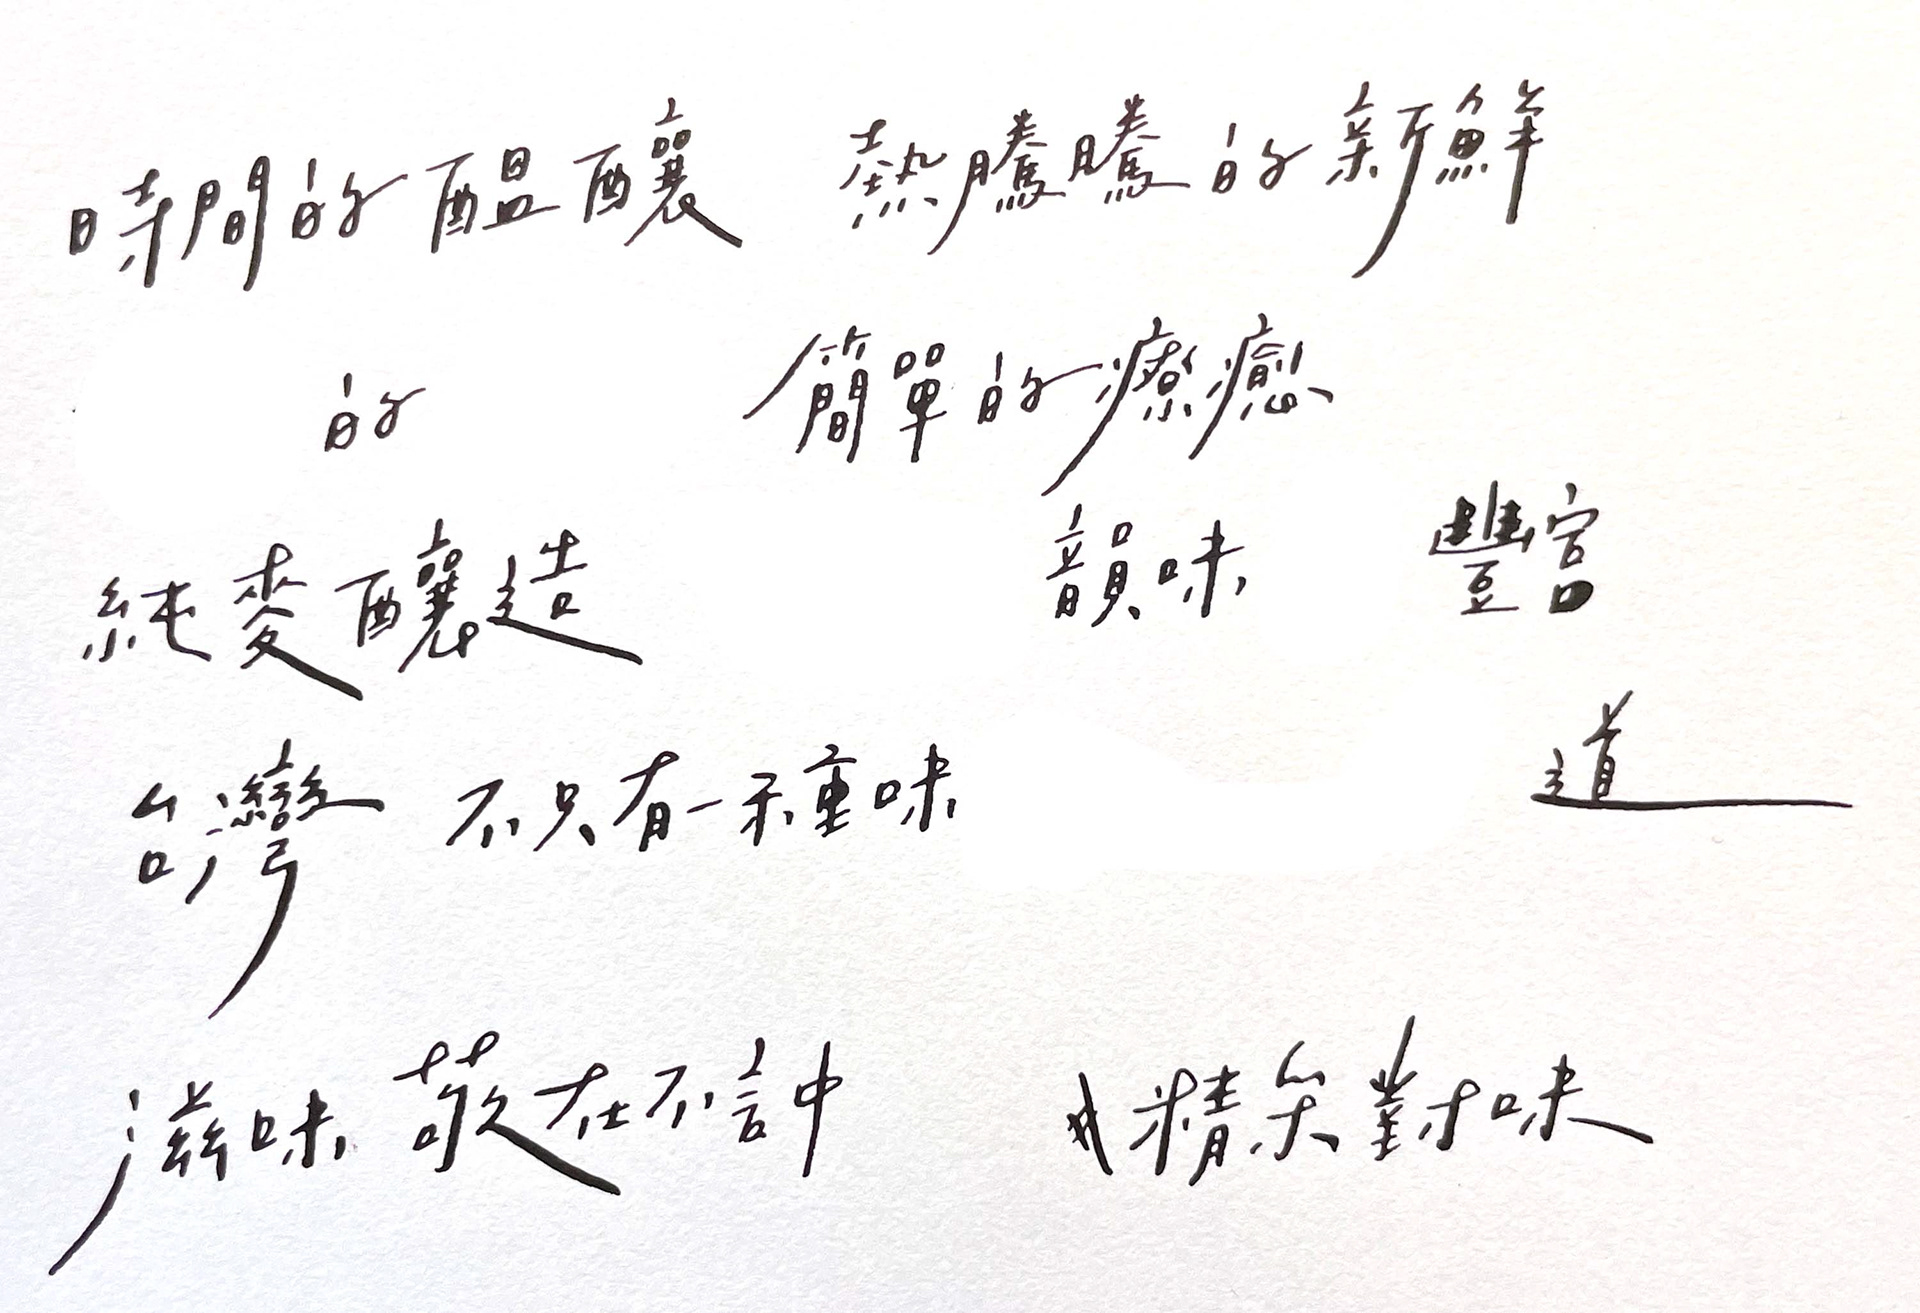 時間的醞釀 熱騰騰的新鮮
的 簡單的療癒
純麥釀造 韻味 豐富
台灣 不只有一種味 道
滋味 敬在不言中 精矣對味